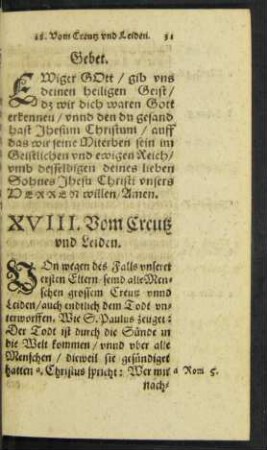 18. Vom Creutz vnd Leiden. 51
Gebet.
EWiger GOtt / gib vns
deinen heiligen Geist /
dz wir dich waren Gott
erkennen / vnnd den du gesand
hast Jhesum Christum / auff
das wir seine Miterben sein im
Geistlichen vnd ewigen Reich /
vmb desselbigen deines lieben
Sohnes Jhesu Christi vnsers
HERREN willen / Amen.
XVIII. Vom Creutz
vnd Leiden.
VOn wegen des Falls vnserer
ersten Eltern / seind alle Men-
schen grossem Creutz vnnd
Leiden / auch endtlich dem Todt vn-
terworffen. Wie S. Paulus zeuget:
Der Todt ist durch die Sünde in
die Welt kommen / vnnd vber alle
Menschen / dieweil sie gesündiget
hatten a. Christus spricht: Wer mir a Rom 5.
nach-